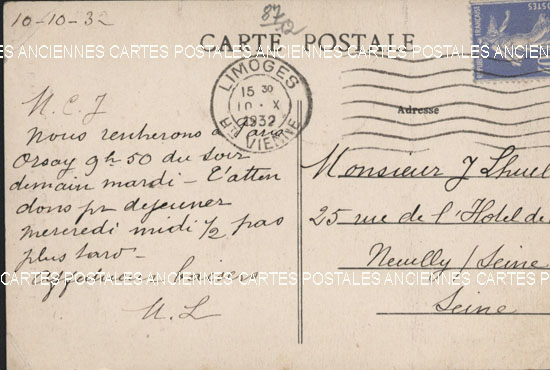 10-10-32
87
CARTE POSTALE
ANCIENNES CARTES POSTALES ANCIENNES CARTES POSTALES ANCIENNES CARTES
LIMOGES
15 30
10 · X
1932
HTE VIENNE
FRANÇAISE
POSTES
Adresse
M. C. J
Nous rentrerons à Paris
Orsay 9h50 du soir
demain mardi - T'atten
dons pr dejeuner
mercredi midi 1/2 pas
plus tard -
Affectueux baisers
M. L
Monsieur J Lhuel
25 rue de l'Hotel de
Neuilly / Seine
Seine
CARTES POSTALES ANCIENNES CARTES POSTALES ANCIENNES CARTES POSTALES